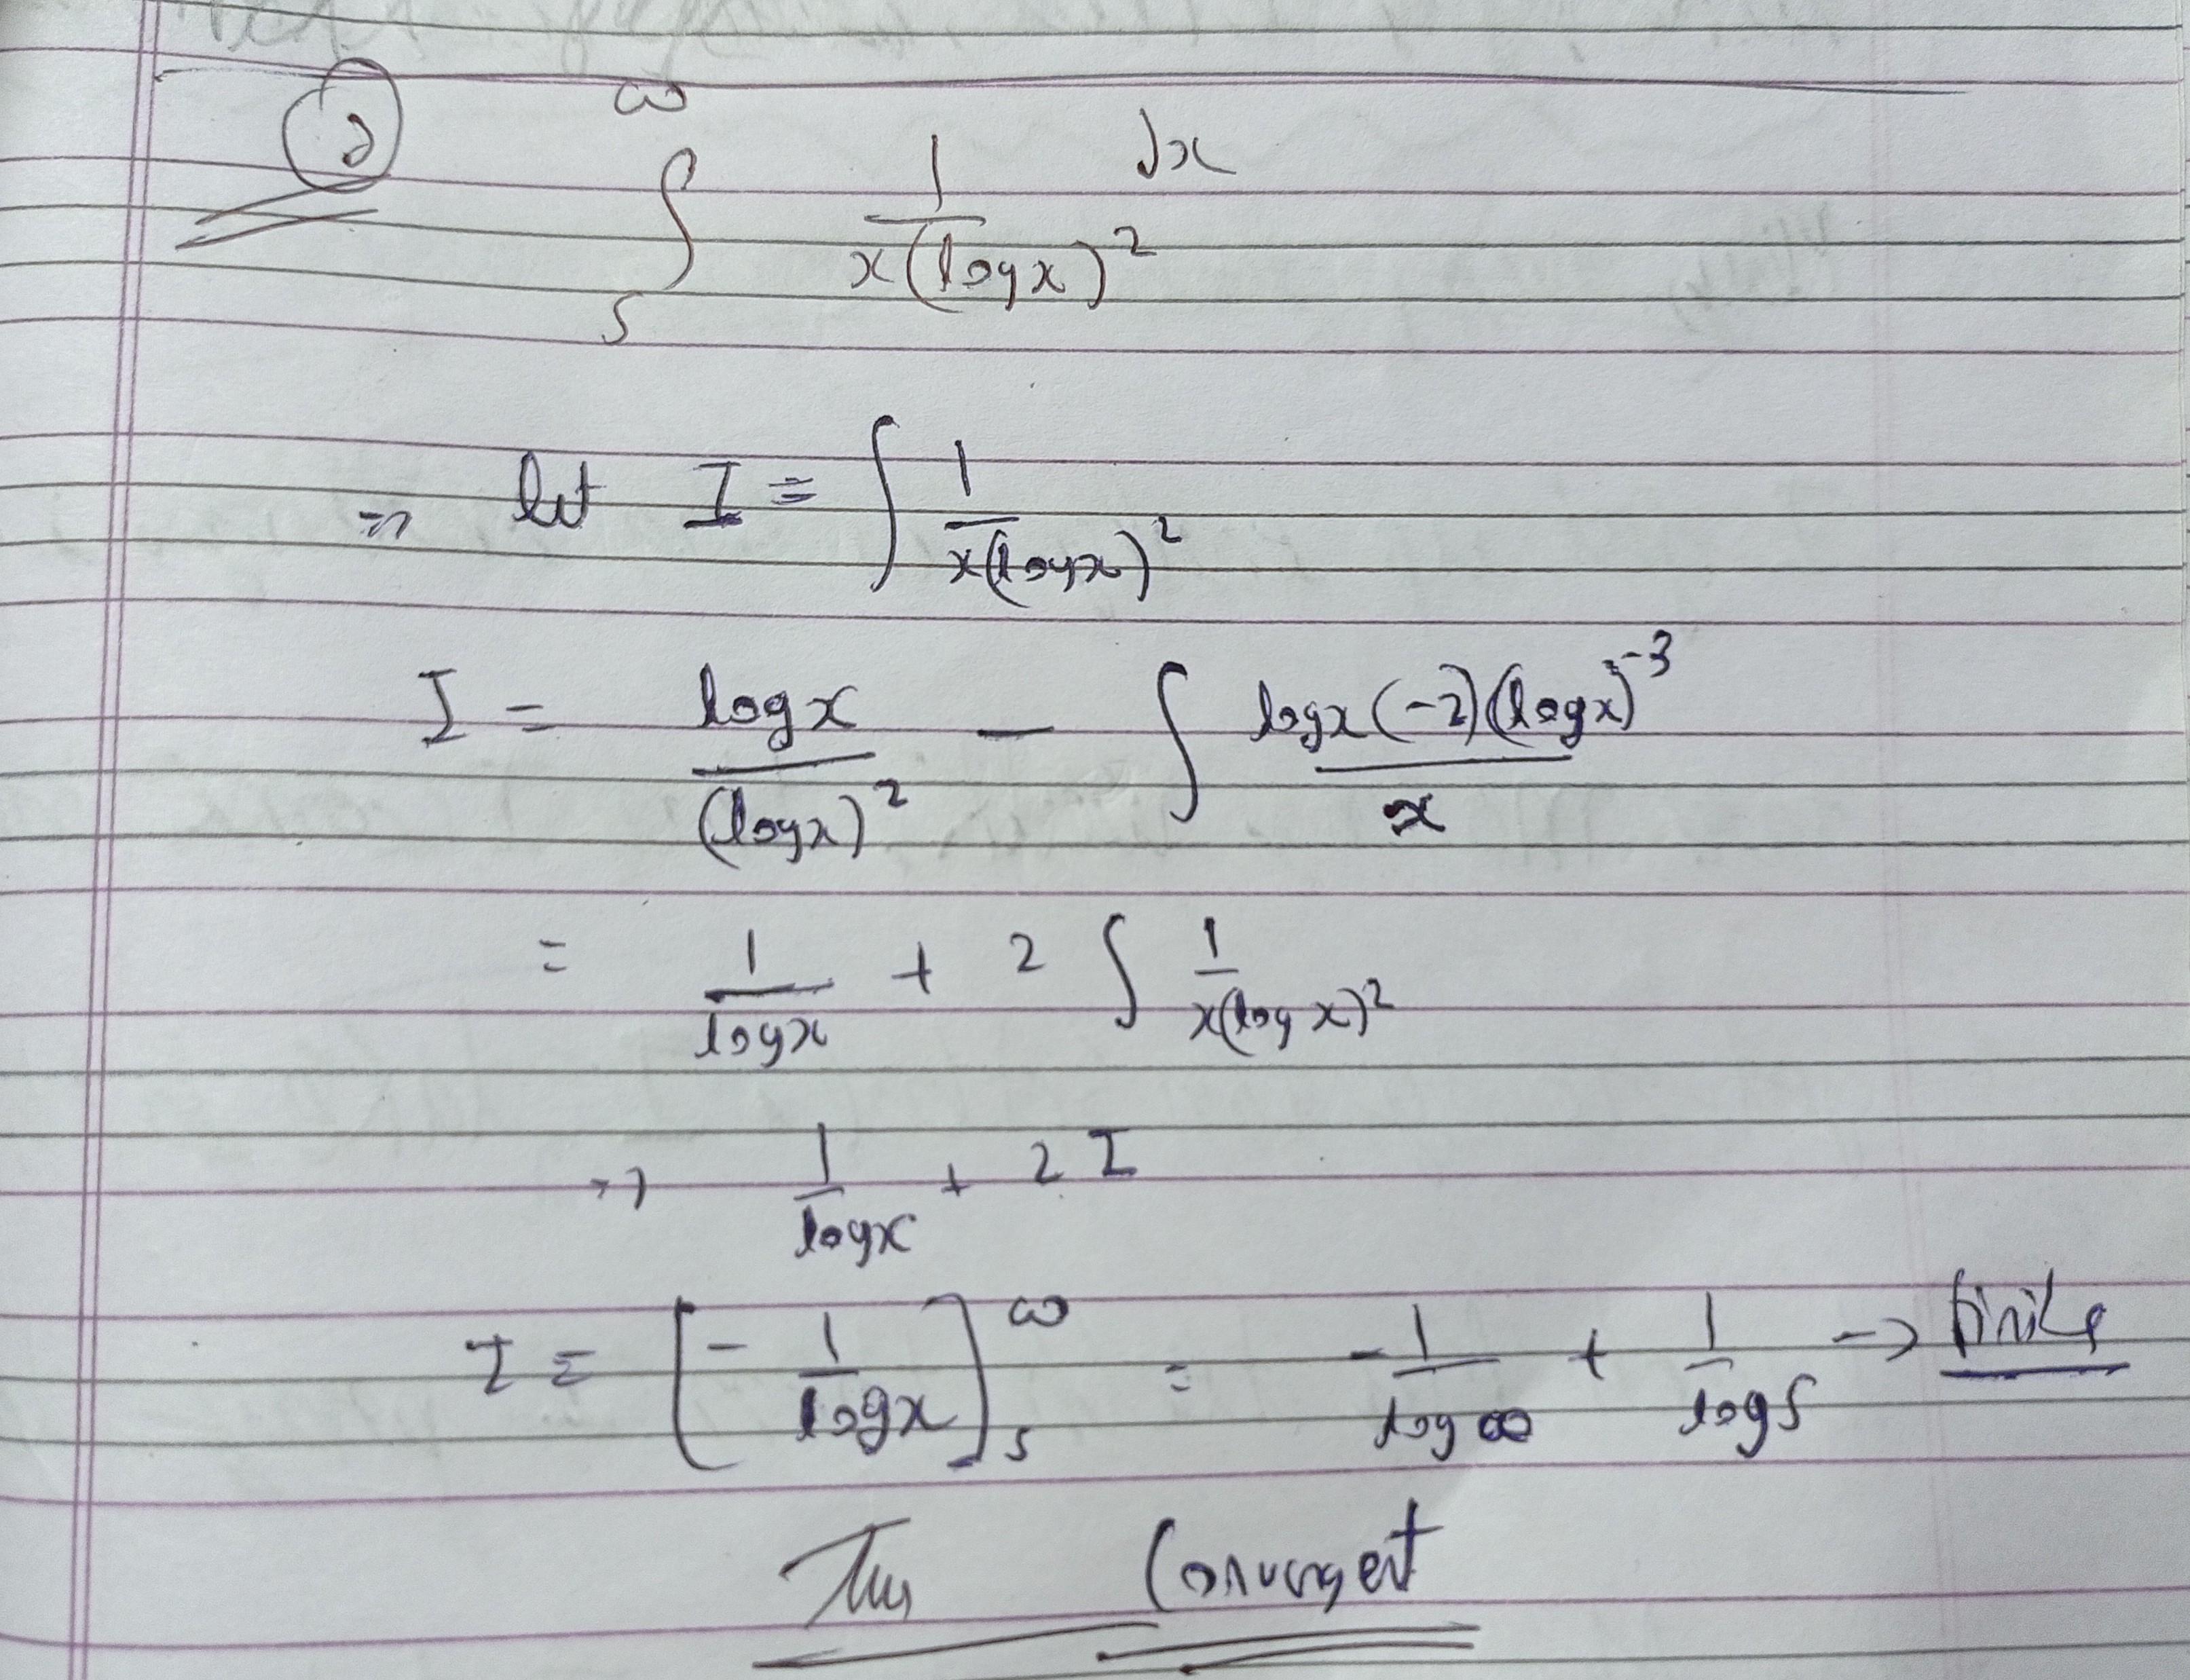 ② ∫₅^∞ 1/(x(log x)²) dx
⇒ let I = ∫ 1/(x(log x)²)
I = log x/(log x)² − ∫ log x(-2)(log x)⁻³/x
= 1/log x + 2 ∫ 1/(x(log x)²)
⇒ 1/log x + 2 I
I = [− 1/log x]₅^∞ = −1/log ∞ + 1/log 5 → finite
Thus Convergent